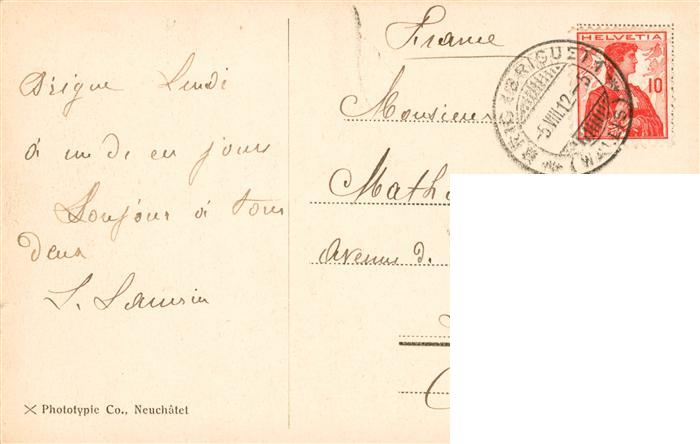 Brigue Lundi
à un de en jours
Bonjour à tous
deux
France
Monsieur
Math
Avenue d.
HELVETIA
10
BRIG (BRIGUE) 1
-5.VIII.12.-5
(WALLIS)
Phototypie Co., Neuchâtel